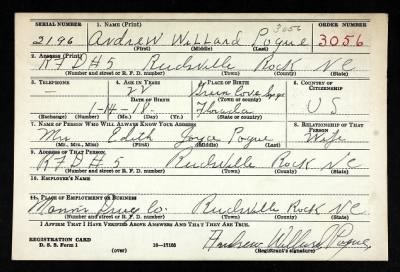 SERIAL NUMBER 1. NAME (Print) ORDER NUMBER
3056
2196 Andrew Willard Pogue 3056
(First) (Middle) (Last)
2. ADDRESS (Print)
RFD #5 Reidsville Rock NC
(Number and street or R. F. D. number) (Town) (County) (State)
3. TELEPHONE 4. AGE IN YEARS 5. PLACE OF BIRTH 6. COUNTRY OF CITIZENSHIP
— 22 Green Cove Spgs
DATE OF BIRTH (Town or county)
1-14-18 Florida U S
(Exchange) (Number) (Mo.) (Day) (Yr.) (State or country)
7. NAME OF PERSON WHO WILL ALWAYS KNOW YOUR ADDRESS 8. RELATIONSHIP OF THAT PERSON
Mrs Edith Joyce Pogue Wife
(Mr., Mrs., Miss) (First) (Middle) (Last)
9. ADDRESS OF THAT PERSON
RFD #5 Reidsville Rock NC
(Number and street or R. F. D. number) (Town) (County) (State)
10. EMPLOYER'S NAME
11. PLACE OF EMPLOYMENT OR BUSINESS
Mann's Drug Co. Reidsville Rock NC
(Number and street or R. F. D. number) (Town) (County) (State)
I AFFIRM THAT I HAVE VERIFIED ABOVE ANSWERS AND THAT THEY ARE TRUE.
REGISTRATION CARD
D. S. S. Form 1 (over) 16—17105 Andrew Willard Pogue
(Registrant's signature)